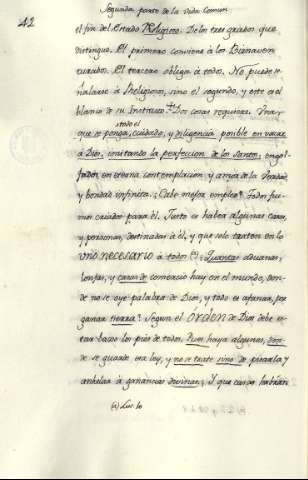 42
Segunda parte de la Vida Comun
el fin del Estado Religioso. De los tres grados, que
distingue. El primero conviene à los Bienaven
turados. El tercero obliga à todos. No puede
nalarse à Religiosos, sino el segundo, y este es el
blanco de su Instituto. Dos cosas requiere. Una,
todo el
que se ponga, cuidado, y diligencia posible en vacar
à Dios, imitando la perfeccion de los Santos, engol
fados en eterna contemplacion, y amor de la Verdad,
y bondad infinita. ¿Cabe mejor empleo? Todos fui
mos criados para èl. Justo es haber algunas casas,
y personas, destinadas à èl, y que solo traten en lo
uno necesario à todos (a). ¿Quantas aduanas,
lonjas, y casas de comercio hay en el mundo, don
de no se oye palabra de Dios, y todo es afanar, por
ganar tierra? Segun el orden de Dios debe es
tar baxo los pies de todos. Pues haya algunas, don
de se guarde esa ley, y no se trate sino de pisarla, y
anhelar à ganancias divinas. Y que casas habràn
(a) Luc. 10